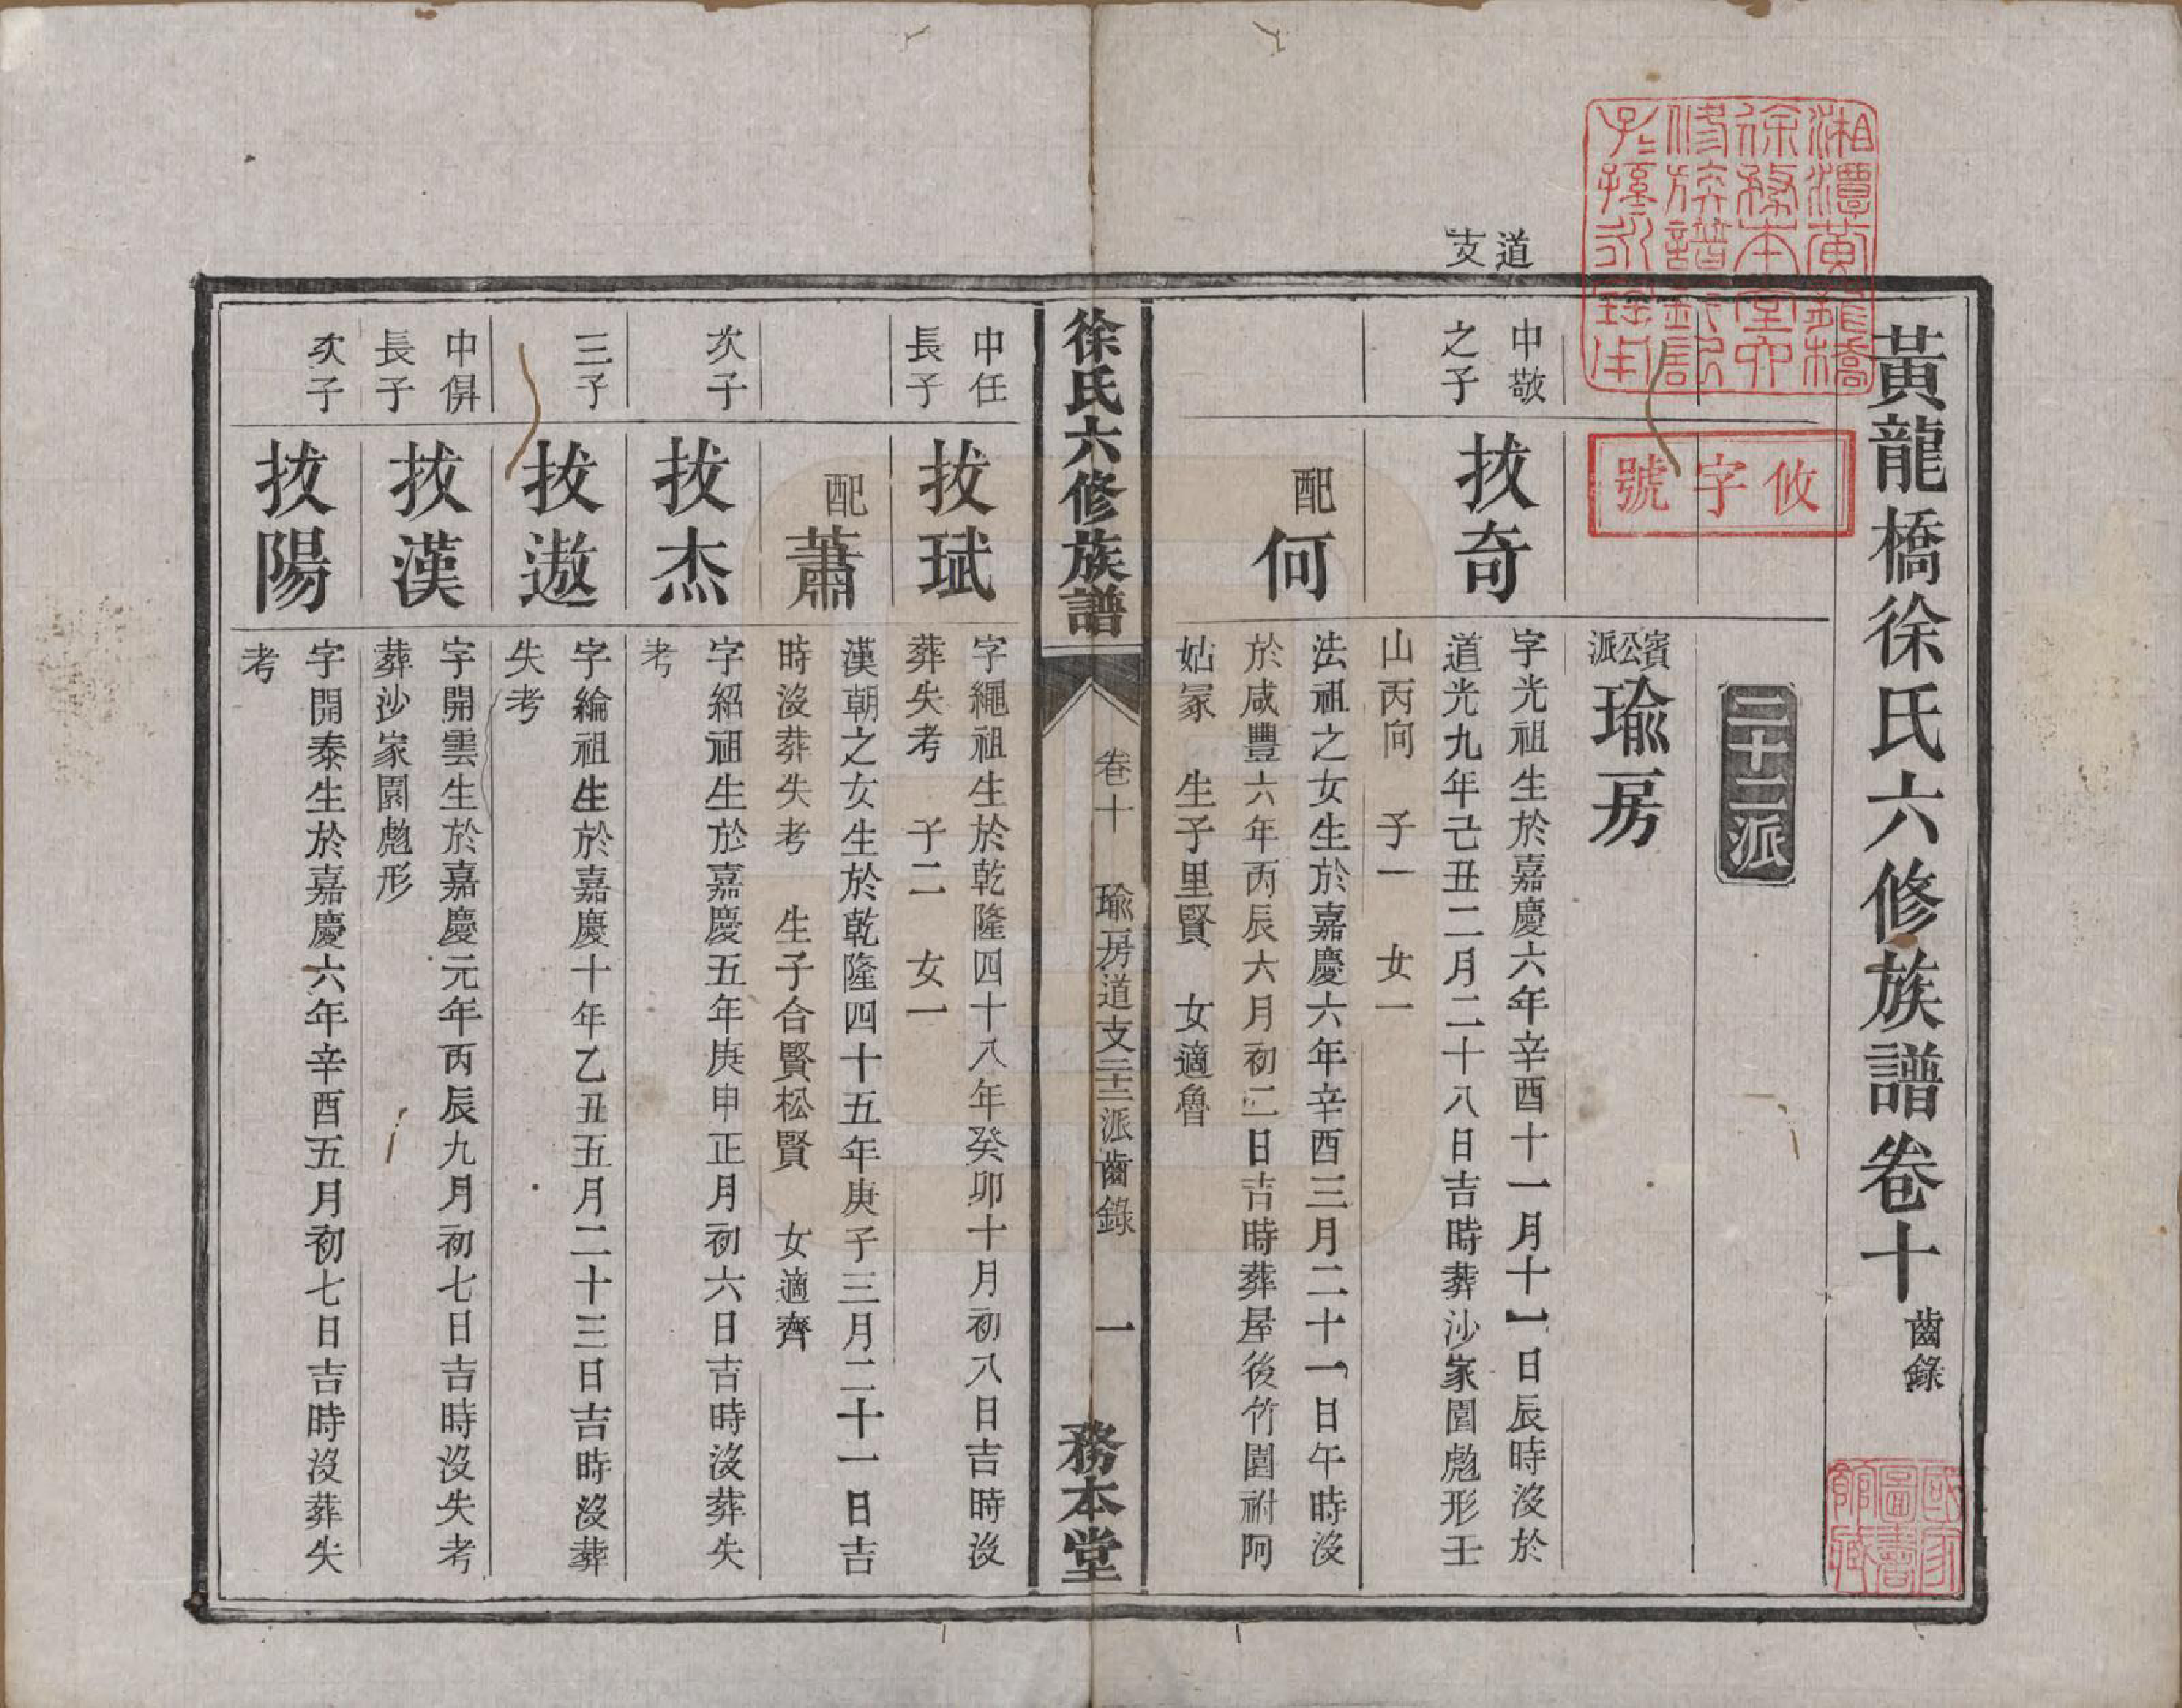 黃龍橋徐氏六修族譜卷十 齒錄
湘潭黃龍橋
徐務本堂六
修族譜鈐記
子子孫孫永寶用
攸字號
國家圖書館藏
二十二派
賓公派 瑜房
道支
中敬之子
拔奇
字光祖生於嘉慶六年辛酉十一月十一日辰時沒於
道光九年己丑二月二十八日吉時葬沙家園彪形壬
山丙向 子一 女一
配何
法祖之女生於嘉慶六年辛酉三月二十一日午時沒
於咸豐六年丙辰六月初二日吉時葬屋後竹園祔阿
姑冢 生子里賢 女適魯
徐氏六修族譜
卷十 瑜房道支二十二派齒錄 一
務本堂
中任長子
拔珷
字繩祖生於乾隆四十八年癸卯十月初八日吉時沒
葬失考 子二 女一
配蕭
漢朝之女生於乾隆四十五年庚子三月二十一日吉
時沒葬失考 生子合賢松賢 女適齊
次子
拔杰
字紹祖生於嘉慶五年庚申正月初六日吉時沒葬失
考
三子
拔遨
字綸祖生於嘉慶十年乙丑五月二十三日吉時沒葬
失考
中倂長子
拔漢
字開雲生於嘉慶元年丙辰九月初七日吉時沒失考
葬沙家園彪形
次子
拔陽
字開泰生於嘉慶六年辛酉五月初七日吉時沒葬失
考